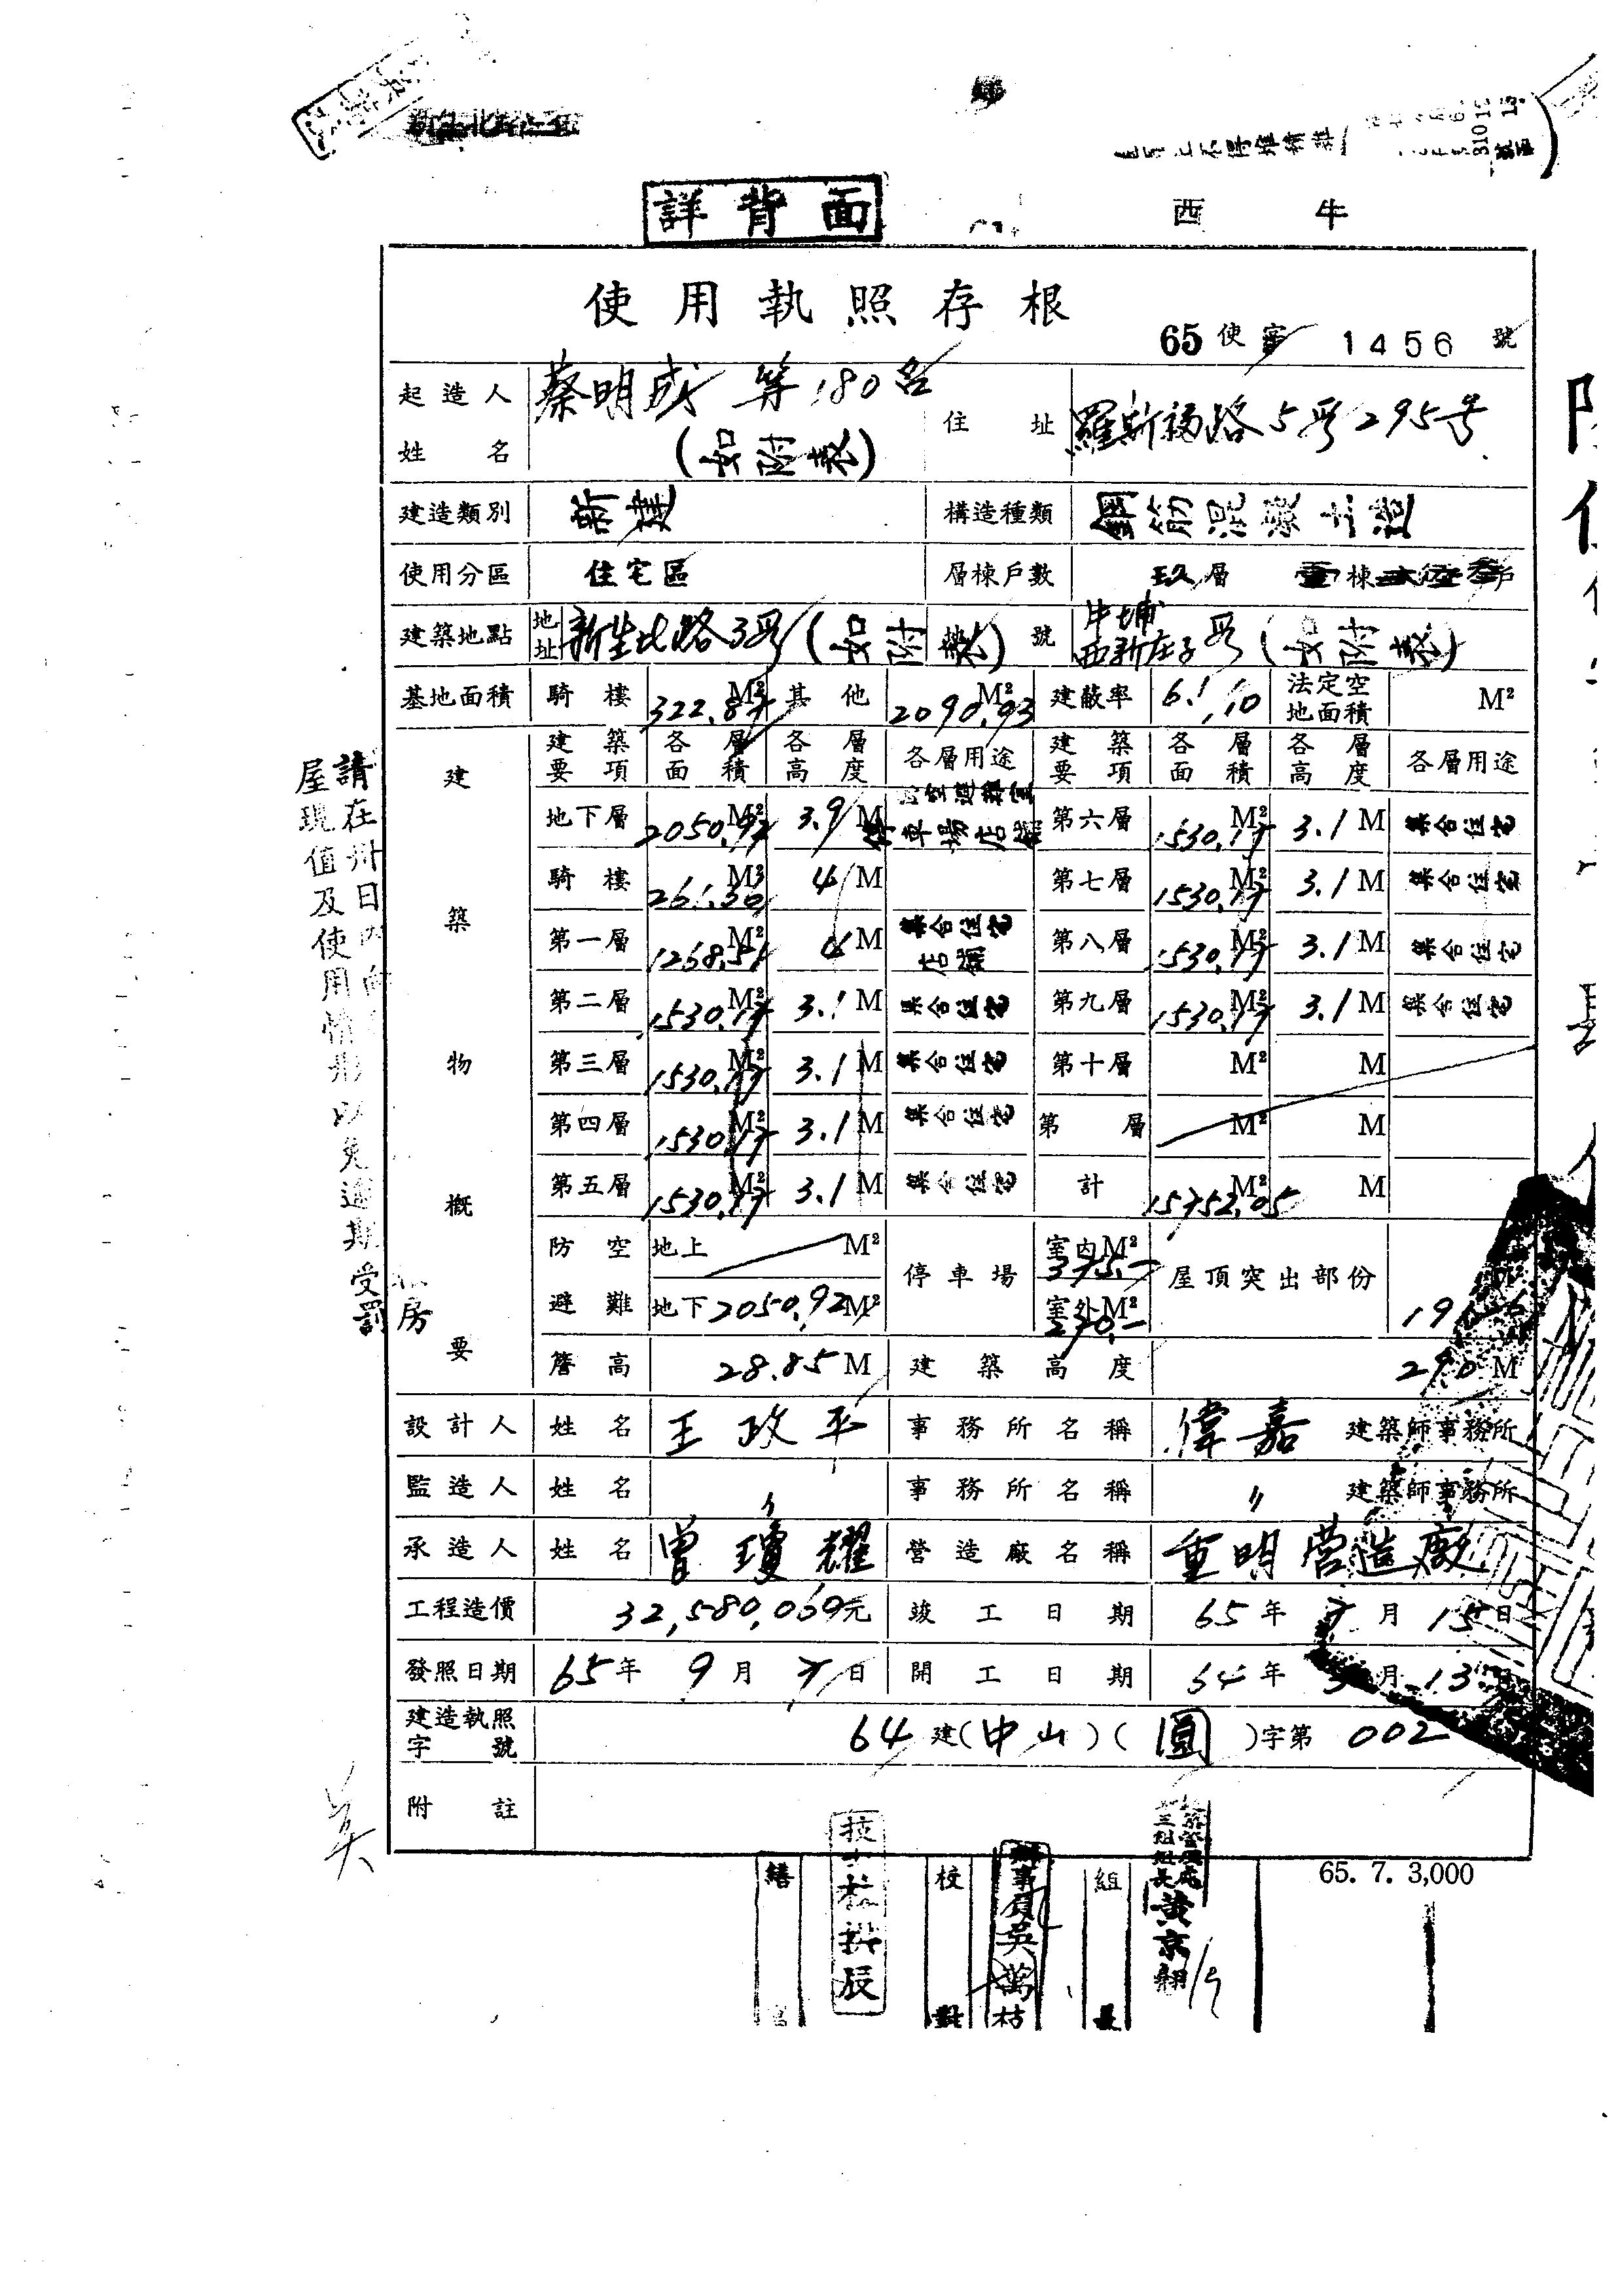 西 牛
詳背面
使用執照存根
65 使 字 1456 號
起造人姓名 蔡明成 等180名 (如附表) 住址 羅斯福路5段295号
建造類別 新建 構造種類 鋼筋混凝土造
使用分區 住宅區 層棟戶數 玖層 棟 戶
建築地點 地址 新生北路3段(如附表) 地號 牛埔 西新庄子段(如附表)
基地面積 騎樓 322.87 M² 其他 2090.93 M² 建蔽率 61.10 法定空地面積 M²
建築物概要
建築要項 各層面積 各層高度 各層用途 建築要項 各層面積 各層高度 各層用途
地下層 2050.92 M² 3.9 M 防空避難室 停車場店舖 第六層 1530.17 M² 3.1 M 集合住宅
騎樓 261.36 M² 4 M 第七層 1530.17 M² 3.1 M 集合住宅
第一層 1268.51 M² 4 M 集合住宅 店舖 第八層 1530.17 M² 3.1 M 集合住宅
第二層 1530.17 M² 3.1 M 集合住宅 第九層 1530.17 M² 3.1 M 集合住宅
第三層 1530.17 M² 3.1 M 集合住宅 第十層 M² M
第四層 1530.17 M² 3.1 M 集合住宅 第 層 M² M
第五層 1530.17 M² 3.1 M 集合住宅 計 15752.05 M² M
防空避難 地上 M² 地下 2050.92 M² 停車場 室內 M² 375.- 室外 M² 270.- 屋頂突出部份
簷高 28.85 M 建築高度 29.0 M
設計人 姓名 王政平 事務所名稱 偉嘉 建築師事務所
監造人 姓名 〃 事務所名稱 〃 建築師事務所
承造人 姓名 曾瓊耀 營造廠名稱 重明营造廠
工程造價 32,580,069元 竣工日期 65年 7月 15日
發照日期 65年 9月 7日 開工日期 64年 月 13日
建造執照字號 64 建(中山)(圓)字第 002
附註
繕 校對 辦事員吳萬枯 組長 黃京翻
65. 7. 3,000
請在卅日內向
房屋現值及使用情形以免逾期受罰